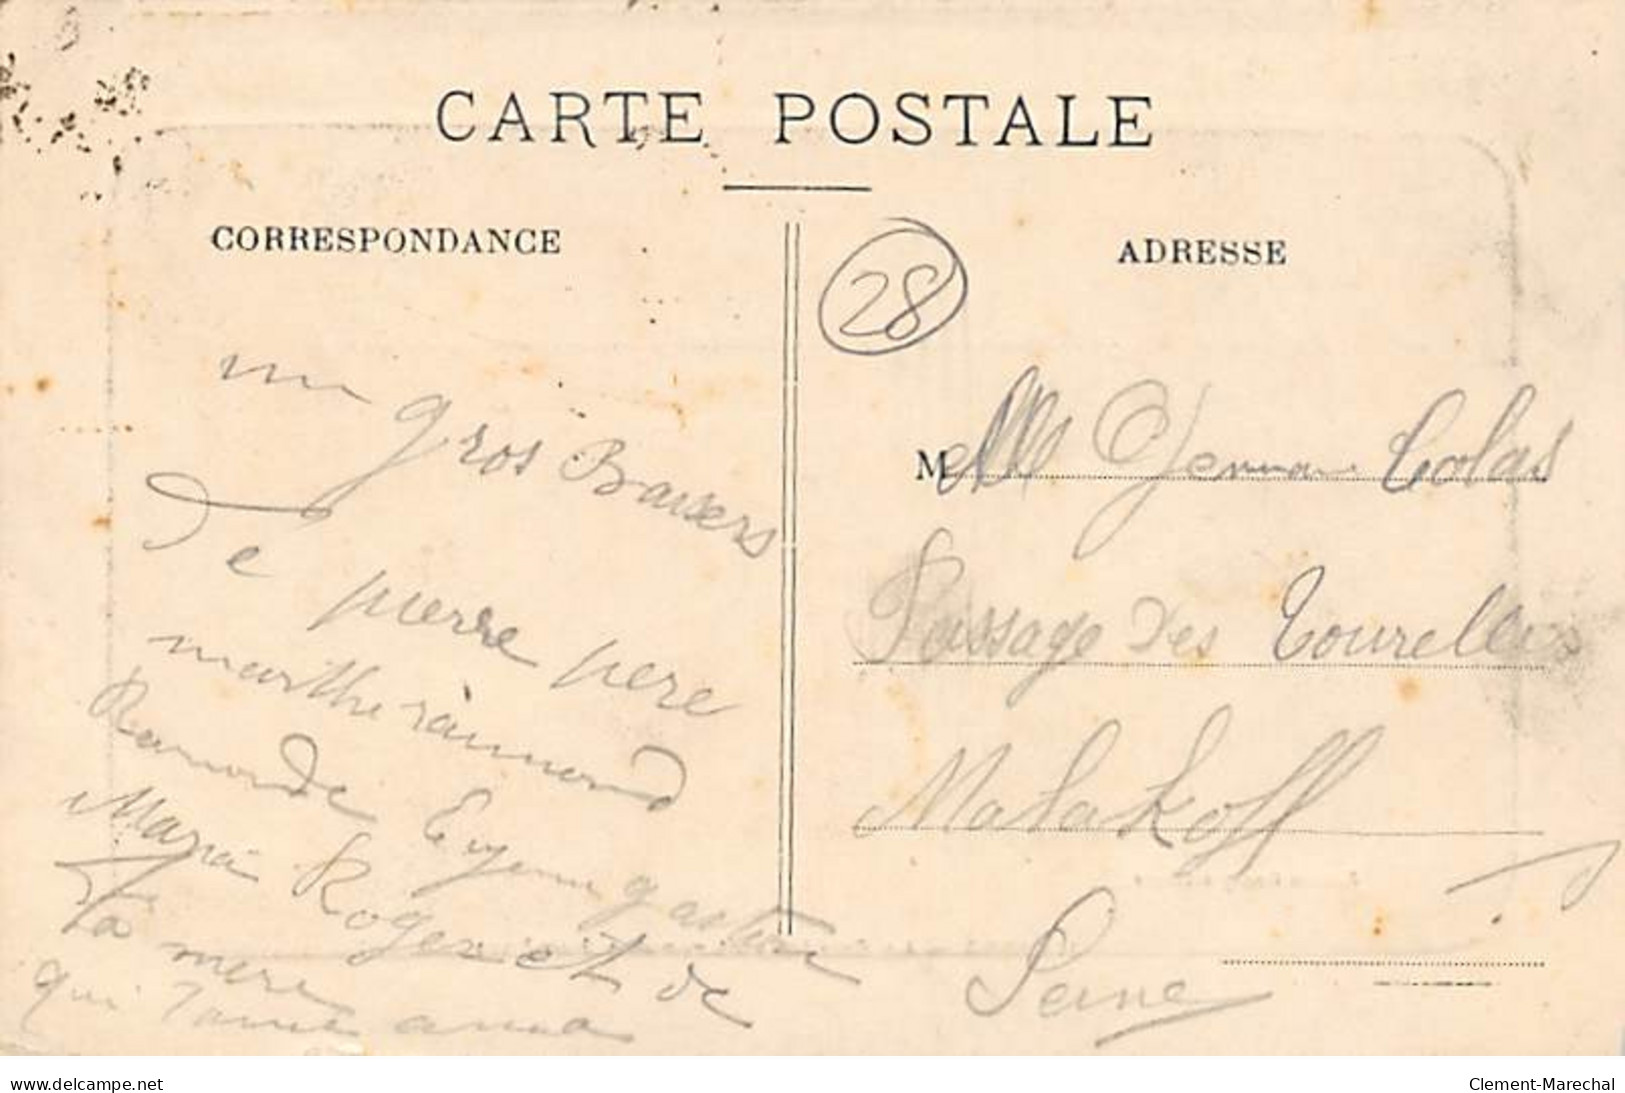 CARTE POSTALE
CORRESPONDANCE
un gros Baisers
De pierre pere
marthe raimond
Remonde Eugenn gastone
Maria Roger et de
Ta mere
qui t'aime anna
28
ADRESSE
Melle Germane Colas
Passage Des Tourelles
Malakoff
Seine
www.delcampe.net
Clement-Marechal